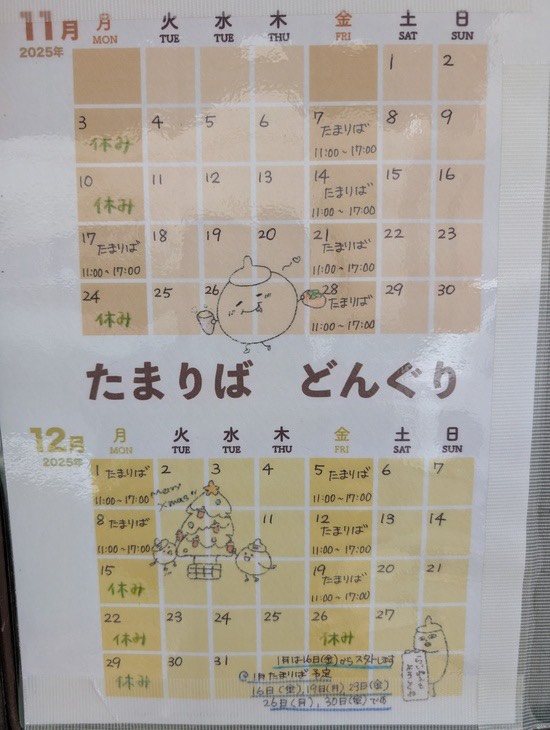 11月 月 火 水 木 金 土 日
2025年 MON TUE TUE THU FRI SAT SUN
1 2
3 4 5 6 7 8 9
休み たまりば
11:00~17:00
10 11 12 13 14 15 16
休み たまりば
11:00~17:00
17 18 19 20 21 22 23
たまりば たまりば
11:00~17:00 11:00~17:00
24 25 26 28 29 30
休み たまりば
11:00~17:00
たまりば どんぐり
12月 月 火 水 木 金 土 日
2025年 MON TUE TUE THU FRI SAT SUN
1 たまりば 2 3 4 5 たまりば 6 7
11:00~17:00 Merry 11:00~17:00
Xmas!!
8 たまりば 11 12 たまりば 13 14
11:00~17:00 11:00~17:00
15 19 たまりば 20 21
休み 11:00~17:00
22 23 24 25 26 27
休み 休み
29 30 31 1月は16日(金)からスタートします
休み @1月たまりば 予定
16日(金),19日(月),23日(金)
26日(月),30日(金)です